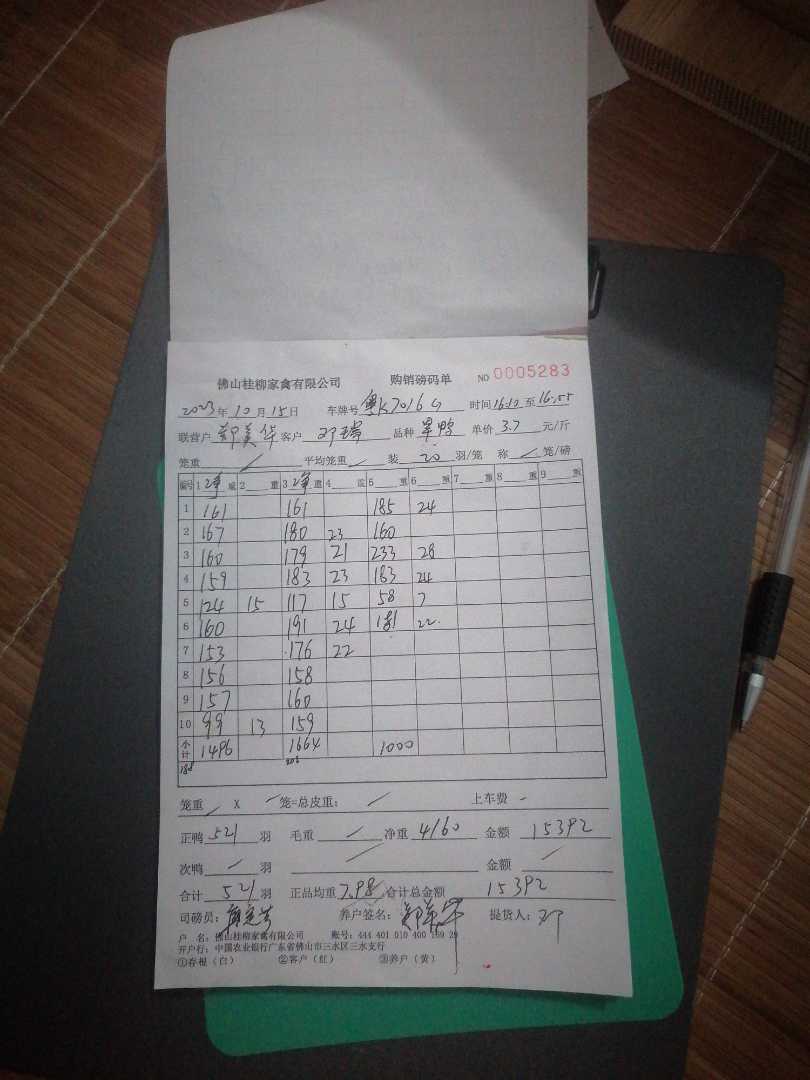 佛山桂柳家禽有限公司 购销磅码单 NO 0005283
2023年10月15日 车牌号 粤K7016G 时间16:10至16:55
联营户 郭美华 客户 邓 品种 单价 3.7 元/斤
笼重 / 平均笼重 / 装 20 羽/笼 称 / 笼/磅
编号 1净重 2 重 3净重 4 重 5 重 6 重 7 重 8 重 9 重
1 161 161 185 24
2 167 180 23 160
3 160 179 21 233 28
4 159 183 23 183 24
5 124 15 117 15 58 7
6 160 191 24 181 22
7 153 176 22
8 156 158
9 157 160
10 99 13 159
小计 1496 1664 1000
188 203
笼重 / X / 笼=总皮重: / 上车费 -
正鸭 521 羽 毛重 / 净重 4160 金额 15392
次鸭 / 羽 / 金额 /
合计 521 羽 正品均重 7.98 合计总金额 15392
司磅员: 养户签名: 提货人: 邓
户 名: 佛山桂柳家禽有限公司 账号: 444 401 010 400 169 29
开户行: 中国农业银行广东省佛山市三水区三水支行
①存根(白) ②客户(红) ③养户(黄)